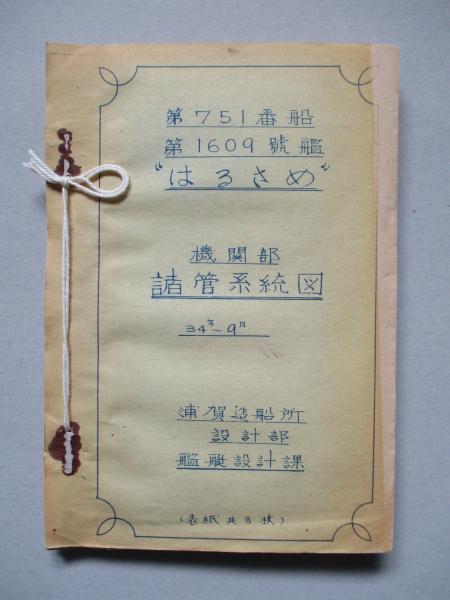 第751番船
第1609號艦
"はるさめ"
機関部
諸管系統図
34年~9月
浦賀造船所
設計部
艦艇設計課
(表紙共8枚)